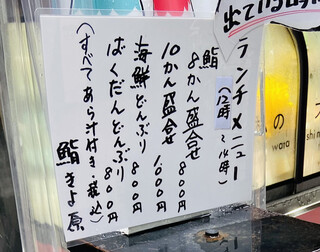 ランチメニュー
(12時~14時)
鮨
8かん盛合せ 800円
10かん盛合せ 1000円
海鮮どんぶり 800円
ばくだんどんぶり 800円
(すべてあら汁付き・税込)
鮨きよ原
出ている時
の
wara